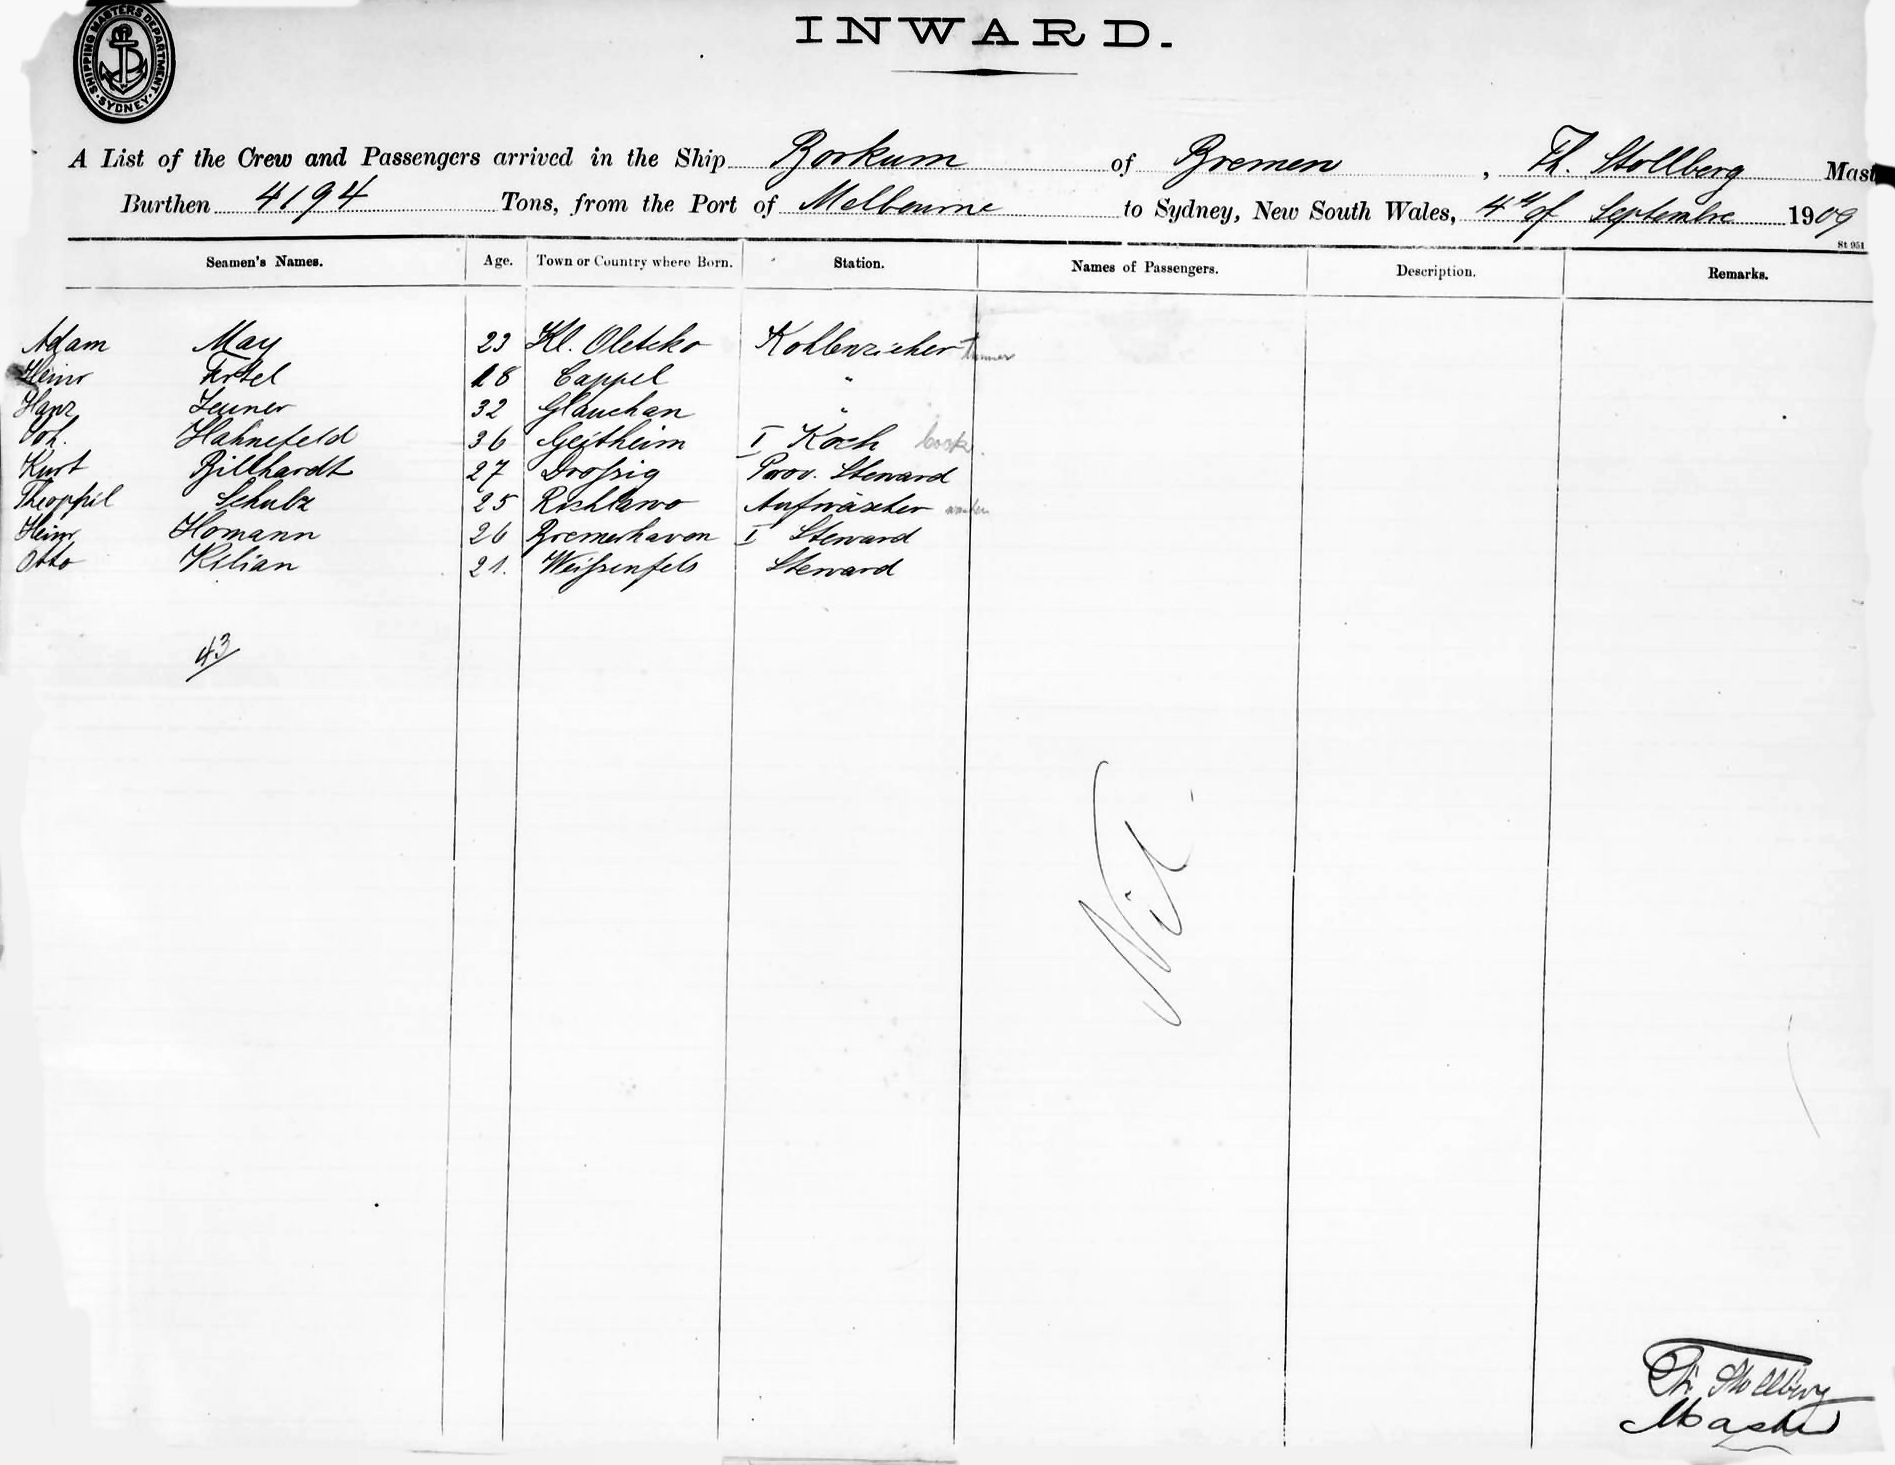 SHIPPING MASTERS DEPARTMENT · SYDNEY ·
INWARD.
A List of the Crew and Passengers arrived in the Ship Borkum of Bremen, Th. Stollberg Mast
Burthen 4194 Tons, from the Port of Melbourne to Sydney, New South Wales, 4th of Septembre 1909
St 951
Seamen's Names. Age. Town or Country where Born. Station. Names of Passengers. Description. Remarks.
Adam May 23 Kl. Oletzko Kohlenzieher trimmer
Heinr Ertel 18 Cappel "
Hanz Zeuner 32 Glauchau "
Joh. Hahnefeld 36 Geitheim I Koch Cook.
Kurt Billhardt 27 Droßzig Prov. Steward
Theophil Schulz 25 Aufwäscher
Heinr Homann 26 Bremerhaven I Steward
Otto Kilian 21. Weißenfels Steward
43
Nil.
Th. Stollberg
Master